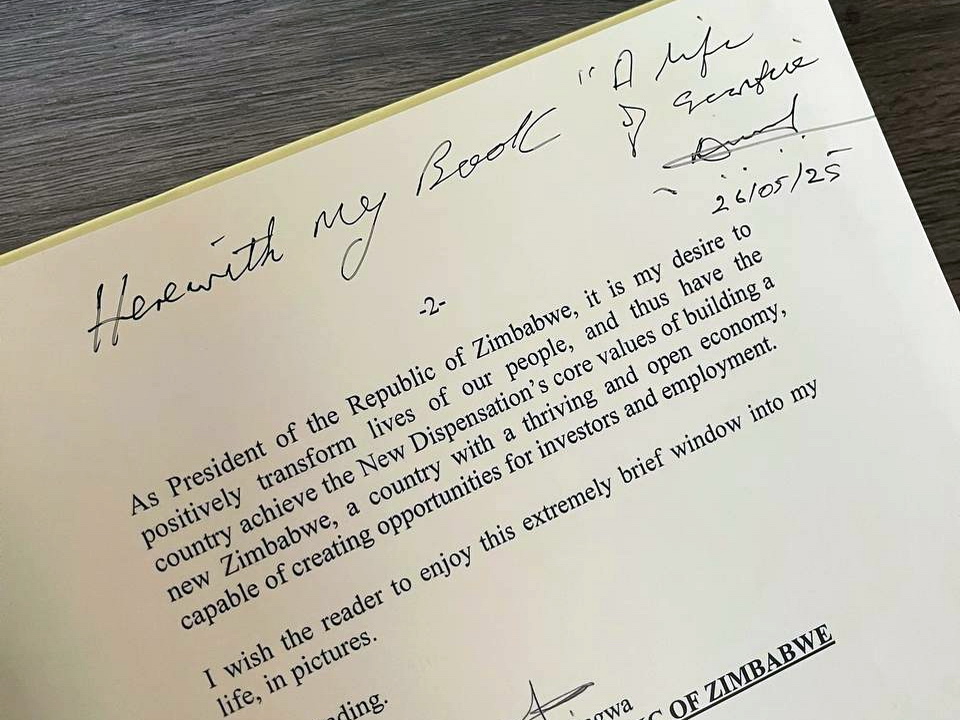 Herewith my Book "A life
of
26/05/25
-2-
As President of the Republic of Zimbabwe, it is my desire to
positively transform lives of our people, and thus have the
country achieve the New Dispensation's core values of building a
new Zimbabwe, a country with a thriving and open economy,
capable of creating opportunities for investors and employment.
I wish the reader to enjoy this extremely brief window into my
life, in pictures.
ding.
gwa
OF ZIMBABWE